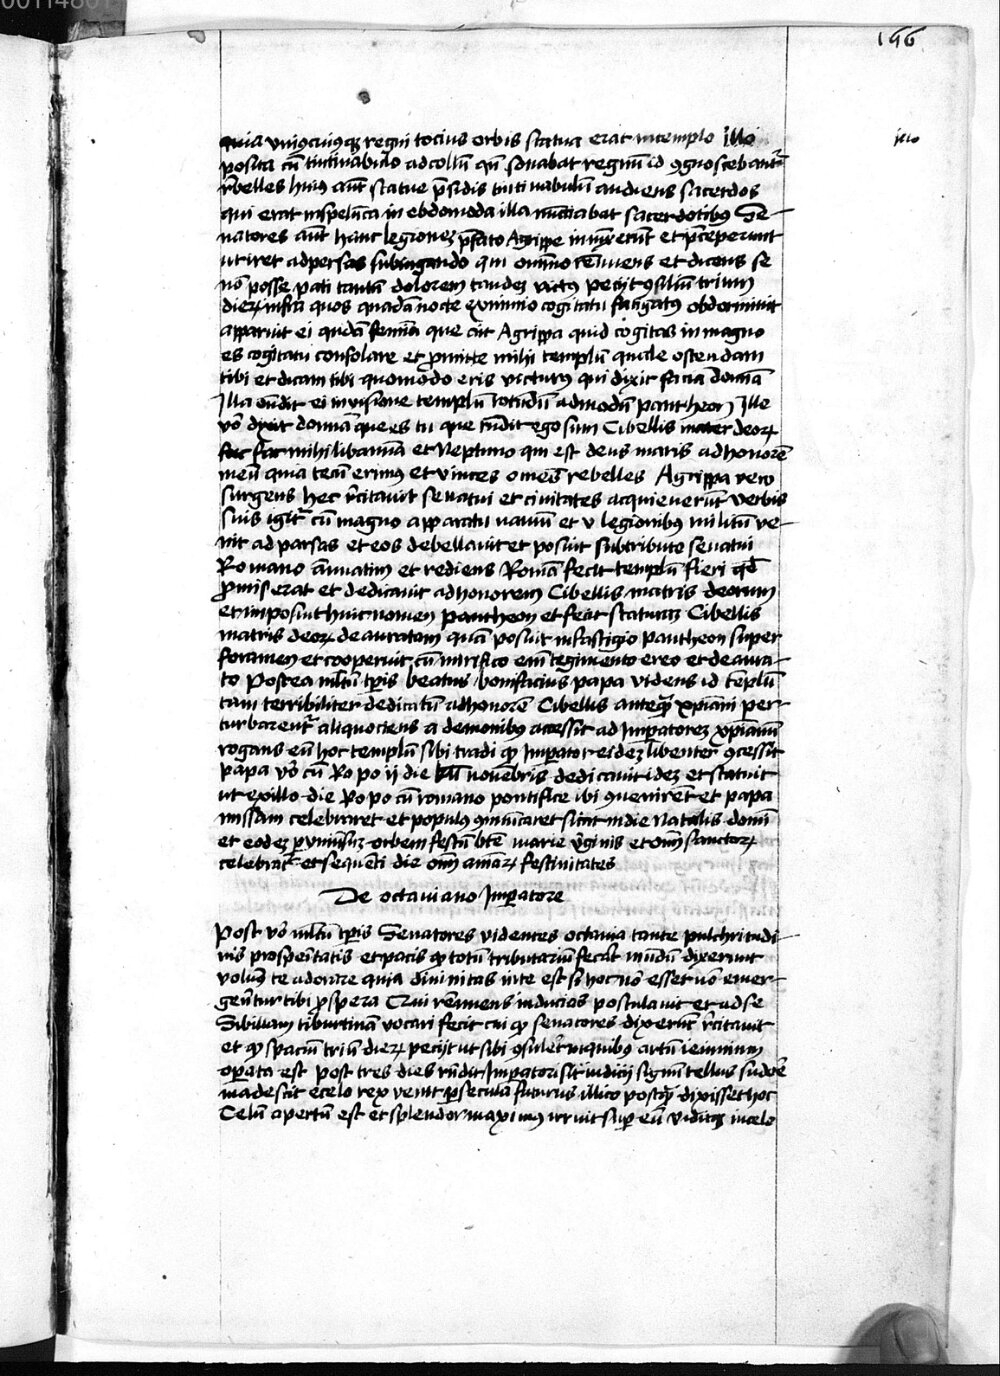 00114801
166
quia vniꝯcuiusqꝫ regni tocius orbis statua erat in templo illo
illo
posita cū tintinabulo ad collū qn̄ sonabat regnū id ꝯgnoscebant~
rebelles huiꝯ aūt statue p̄sidis tintinabulū audiens sacerdos
qui erat in spelūca in ebdomoda illa nūciabat sacerdotibꝯ Se-
natores aūt hanc legionez p̄fato Agrippe iniūxerūt et p̄ceperunt
ut iret ad persas subiugando qui omīno rēnuens et dicens se
nō posse pati tantū dolorem tandez victꝯ pecijt ꝯsiliū trium
dieꝝ infra quos quadā nocte ex nimio cogitatu fatigatꝯ obdormiuit
apparuit ei qudā femīa que ait Agrippa quid cogitas in magno
es cogitatu consolare et ꝓmitte mihi templū quale ostendam
tibi et dicam tibi quomodo eris victurꝯ qui dixit faciā domīa
Illa oñdit ei in visione templū rotūdū admodū pantheon Ille
vō dixit domīa que es tu que r̄ndit ego sum Cibellis mater deoꝝ
fac mihi libamīa et Neptuno qui est deus maris ad honorē
meū quia tecū erimꝯ et vinces omēs rebelles Agrippa vero
surgens hec r̄citauit senatui et ciuitates acquieuerūt verbis
suis igit~ cū magno apparatu nauiū et v legionibꝯ militū ve-
nit ad parsas et eos debellauit et posuit sub tributo senatui
Romano annuatim et rediens Romā fecit templū fieri qd̄
ꝓmiserat et dedicauit ad honorem Cibellis matris deorum
et imposuit huic nomen pantheon et fecit statuaꝫ Cibellis
matris deoꝝ deauratam quā posuit in fastigio pantheon super
foramen et cooperuit cū mirifico eiꝯ tegimento ereo et deaura-
to Postea ml̄tū tꝑis beatus bonifacius papa videns id templū
tam terribiliter dedicatū ad honorē Cibellis anteqꝫ xp̄iani per-
turbarent~ aliquociens a demonibꝯ accessit ad Imꝑatorez xp̄ianū
rogans eū hoc templū sibi tradi qꝫ Imꝑator eidez libenter ꝯcessit
papa vō cū Ro po ij die Novembris dedicauit idez et statuit
ut ex illo die Ro po cū romano pontifice ibi ꝯuenirēt et papa
missam celebraret et populꝯ ꝯmunicaret sicut in die Natalis domī
et eodez ꝑ vniūsuꝫ orbem festū bt̄e marie v̄ginis et om̄ sanctoꝝ
celebrat~ et sequēti die om̄ aīaꝝ festiuitates
De octauiano Imꝑatore
Post vō ml̄tū tꝑis Senatores videntes octauiā tante pulchritudi-
nis prosperitatis et pacis qꝫ totū tributariū fecit mūdū dixerunt
volumꝯ te adorare quia diuinitas in te est si hoc nō esset nō euer-
gerentur tibi ꝓspera Qui rēnuens inducias postulauit et ad se
Sibillam tiburtinā vocari fecit cui qꝫ senatores dixerūt r̄citauit
et qꝫ spaciū triū dieꝝ pecijt ut sibi ꝯsuler̄ in quibꝯ artū ieiuniuꝫ
oꝑata est post tres dies r̄ndit Imꝑatori sit iudicij signū tellus sudor̄
madescit e celo rex venit ꝑ secula futurus illico postqꝫ dixisset hoc
Celū apertū est et splendor maximꝯ irruit suꝑ eū viditqꝫ in celo